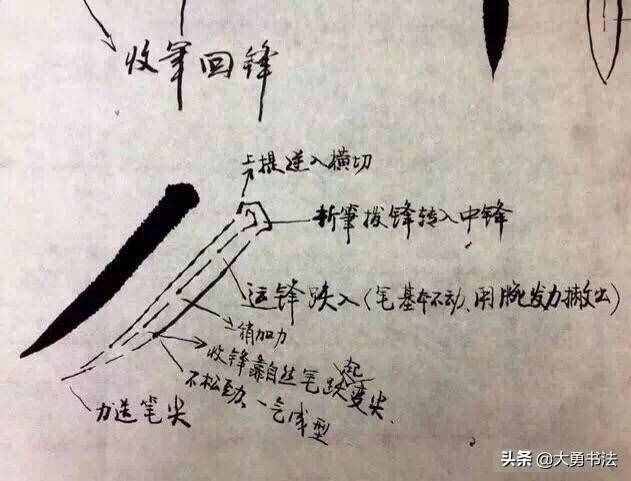 收笔回锋
上提逆入横切
折筆拨锋转入中锋
运锋跌入（笔基本不动、用腕发力撇出）
稍加力
收锋靠自然笔跌起变尖、
不松劲、一气成型
力送笔尖
头条 @大勇书法